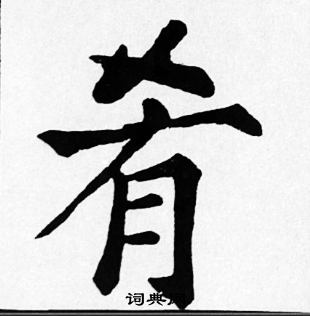 肴
词典网